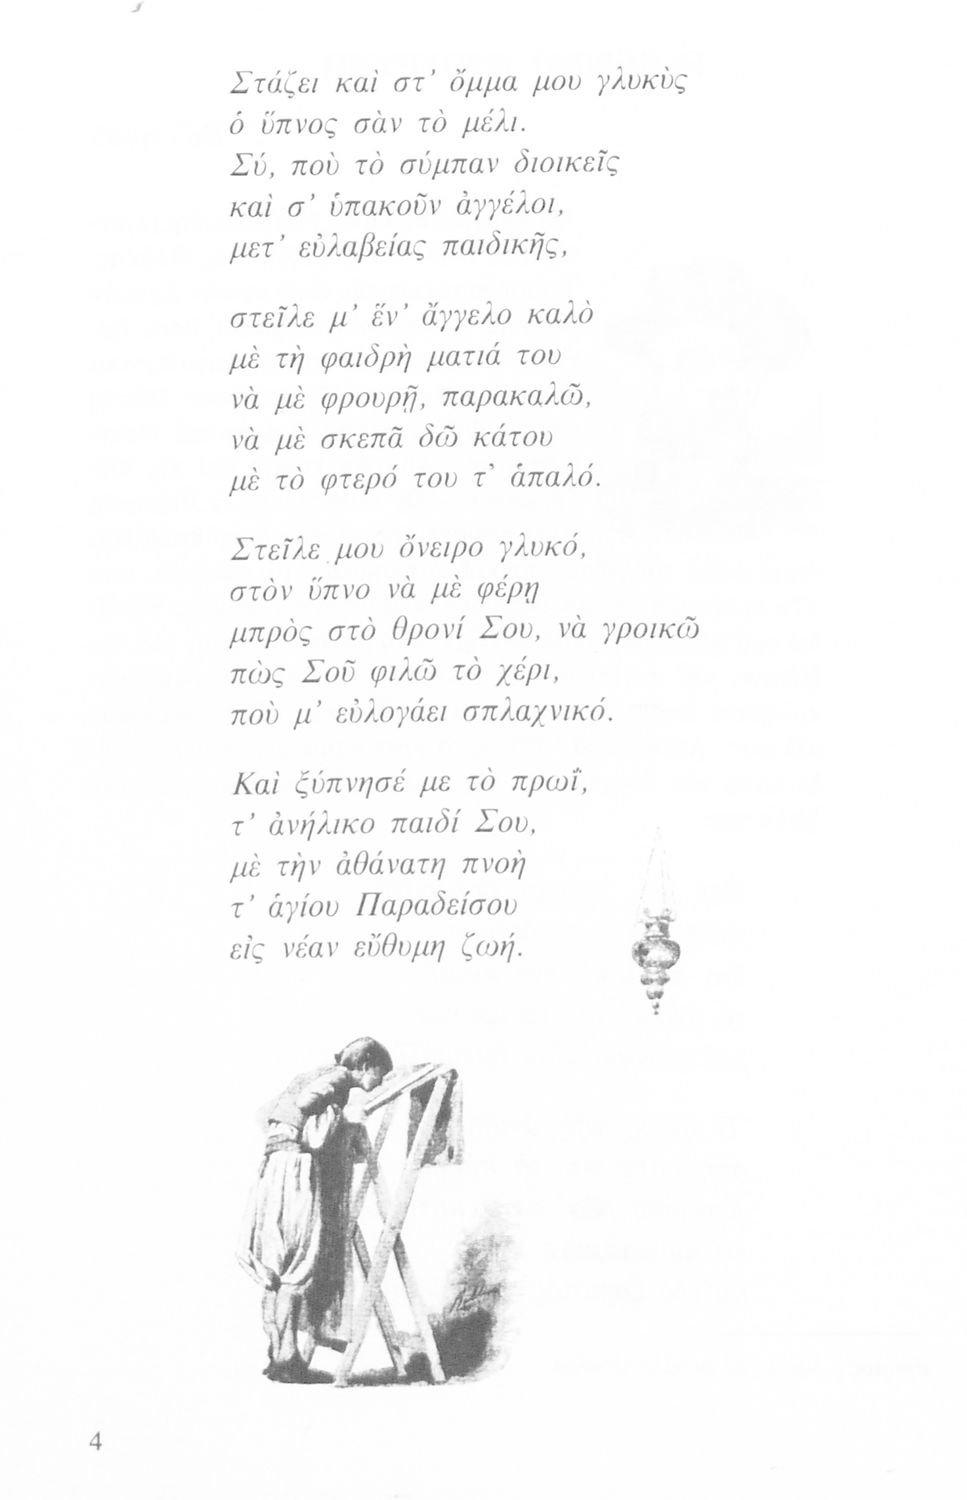 Στάζει καὶ στ' ὄμμα μου γλυκὺς
ὁ ὕπνος σὰν τὸ μέλι.
Σύ, ποὺ τὸ σύμπαν διοικεῖς
καὶ σ' ὑπακοῦν ἀγγέλοι,
μετ' εὐλαβείας παιδικῆς,
στεῖλε μ' ἕν' ἄγγελο καλὸ
μὲ τὴ φαιδρὴ ματιά του
νὰ μὲ φρουρῇ, παρακαλῶ,
νὰ μὲ σκεπᾶ δῶ κάτου
μὲ τὸ φτερό του τ' ἁπαλό.
Στεῖλε μου ὄνειρο γλυκό,
στὸν ὕπνο νὰ μὲ φέρῃ
μπρὸς στὸ θρονί Σου, νὰ γροικῶ
πὼς Σοῦ φιλῶ τὸ χέρι,
ποὺ μ' εὐλογάει σπλαχνικό.
Καὶ ξύπνησέ με τὸ πρωΐ,
τ' ἀνήλικο παιδί Σου,
μὲ τὴν ἀθάνατη πνοὴ
τ' ἁγίου Παραδείσου
εἰς νέαν εὔθυμη ζωή.
4